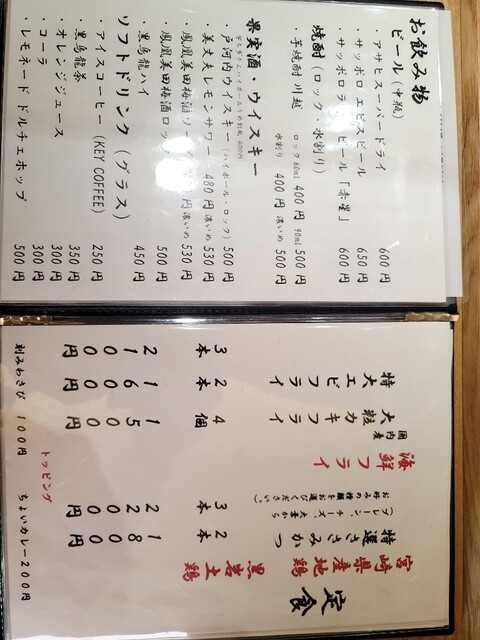 お飲み物
ビール(中瓶)
・アサヒスーパードライ 600円
・サッポロエビスビール 650円
・サッポロラガービール「赤星」 600円
焼酎(ロック・水割り)
・芋焼酎 川越 ロック60ml 400円 90ml 500円
水割り 400円 濃いめ 500円
果実酒・ウイスキー
・戸河内ウイスキー(ハイボール・ロック) 500円
・美丈夫レモンサワー 480円 濃いめ 530円
・鳳凰美田梅酒ソーダ 円 濃いめ 530円
・鳳凰美田梅酒ロック 500円
・黒烏龍ハイ 450円
ソフトドリンク(グラス)
・アイスコーヒー(KEY COFFEE) 250円
・黒烏龍茶 350円
・オレンジジュース 300円
・コーラ 300円
・レモネード ドルチェホップ 500円
定食
宮崎県産地鶏 黒岩土鶏
特選ささみかつ 2本 1800円
3本 2200円
(プレーン、チーズ、大葉から
お好みの種類をお選びください。)
海鮮フライ
国内産
大粒カキフライ 4個 1500円
特大エビフライ 2本 1600円
3本 2100円
トッピング
刻みわさび 100円 ちょいカレー 200円